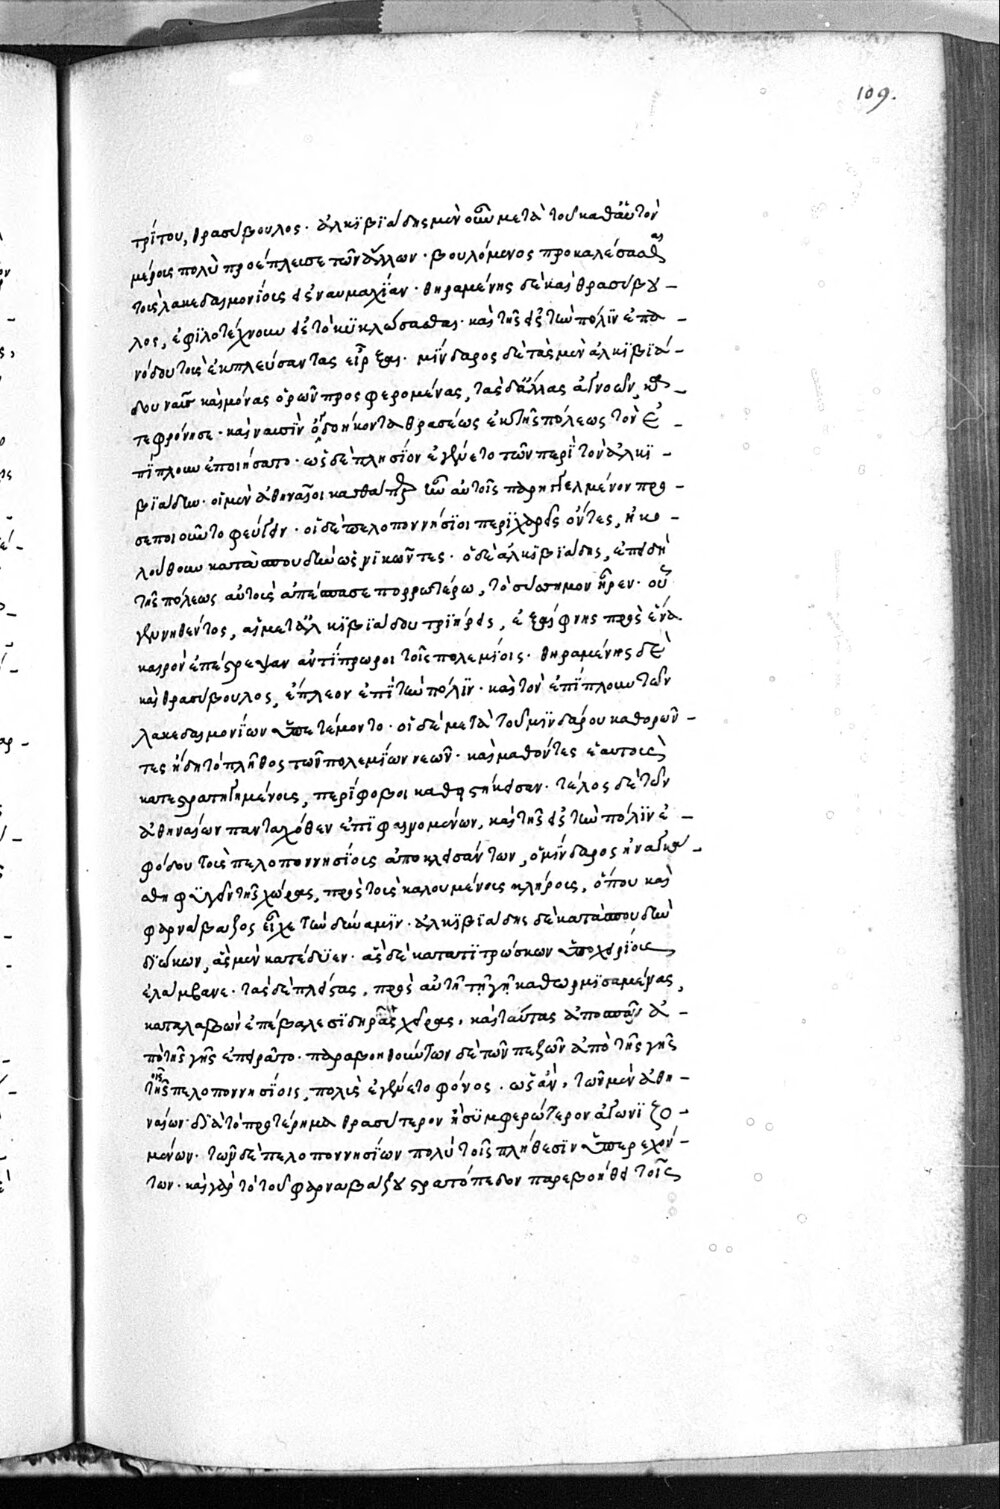 109.
τρίτου, θρασύβουλος· ἀλκϊβϊάδης μὲν οὖν μετὰ τοῦ καθ' αὑτὸν
μέρους πολὺ προέπλευσε τῶν ἄλλων· βουλόμενος προκαλέσασθαι
τοὺς λακεδαιμονίους εἰς ναυμαχΐαν· θηραμένης δὲ καὶ θρασύβου-
λος, ἐφϊλοτέχνουν εἰς τὸ κϋκλώσασθαι· καὶ τῆς εἰς τὴν πόλϊν ἐπα-
νόδου τοὺς ἐκπλεύσαντας εἶρξαι· μΐνδαρος δὲ τὰς μὲν ἀλκϊβϊά-
δου ναῦς καὶ μόνας ὁρῶν προσφερομένας, τὰς δ' ἄλλας ἀγνοῶν, κα-
τεφρόνησε· καὶ ναυσῒν ὀγδοήκοντα θρασέως ἐκ τῆς πόλεως τὸν ἐ-
πΐπλουν ἐποιήσατο· ὡς δὲ πλησίον ἐγένετο τῶν περῒ τὸν ἀλκϊ-
βϊάδην· οἱ μὲν ἀθηναῖοι καθάπερ ἦν αὐτοῖς παρηγγελμένον προ-
σεποιοῦντο φεύγειν· οἱ δὲ πελοποννήσϊοι περϊχαρεῖς ὄντες, ἠκο-
λούθουν κατὰ σπουδὴν ὡς νϊκῶντες· ὁ δὲ ἀλκϊβϊάδης, ἐπειδὴ
τῆς πόλεως αὐτοὺς ἀπέσπασε πορρωτέρω, τὸ σύσσημον ἦρεν· οὗ
γενηθέντος, αἱ μετ' ἀλκϊβϊάδου τριήρεις, ἐξαίφνης πρὸς ἕνα
καιρὸν ἐπέστρεψαν ἀντΐπρωροι τοῖς πολεμΐοις· θηραμένης δὲ
καὶ θρασύβουλος, ἔπλεον ἐπῒ τὴν πόλϊν· καὶ τὸν ἐπΐπλουν τῶν
λακεδαιμονΐων ὑπετέμοντο· οἱ δὲ μετὰ τοῦ μϊνδάρου καθορῶν-
τες ἤδη τὸ πλῆθος τῶν πολεμΐων νεῶν· καὶ μαθόντες ἑαυτοὺς
κατεστρατηγημένους, περίφοβοι καθειστήκεισαν· τέλος δὲ τῶν
ἀθηναίων πανταχόθεν ἐπϊφαινομένων, καὶ τῆς εἰς τὴν πόλϊν ἐ-
φόδου τοὺς πελοποννησΐους ἀποκλεισάντων, ὁ μΐνδαρος ἠναγκά-
σθη φϋγεῖν τῆς χώρας, πρὸς τοὺς καλουμένους κλήρους, ὅπου καὶ
φαρνάβαζος εἶχε τὴν δύναμϊν· ἀλκϊβϊάδης δὲ κατὰ σπουδὴν
δϊώκων, ἃς μὲν κατέδϋεν· ἃς δὲ κατατϊτρώσκων ὑποχειρίους
ἐλάμβανε· τὰς δὲ πλείστας, πρὸς αὐτῇ τῇ γῇ καθωρμϊσαμένας,
καταλαβὼν ἐπέβαλε σϊδηρᾶς χεῖρας, καὶ ταύτας ἀποσπᾶν ἀ-
πὸ τῆς γῆς ἐπειρᾶτο· παραβοηθούντων δὲ τῶν πεζῶν ἀπὸ τῆς γῆς
τοῖς πελοποννησΐοις, πολὺς ἐγένετο φόνος· ὡς ἂν, τῶν μὲν ἀθη-
ναίων· δϊὰ τὸ προτέρημα θρασύτερον ἢ σϋμφερώτερον ἀγωνϊζο-
μένων· τῶν δὲ πελοποννησΐων πολὺ τοῖς πλήθεσϊν ὑπερεχόν-
των· καὶ γὰρ τὸ τοῦ φαρναβάζου στρατόπεδον παρεβοήθει τοῖς